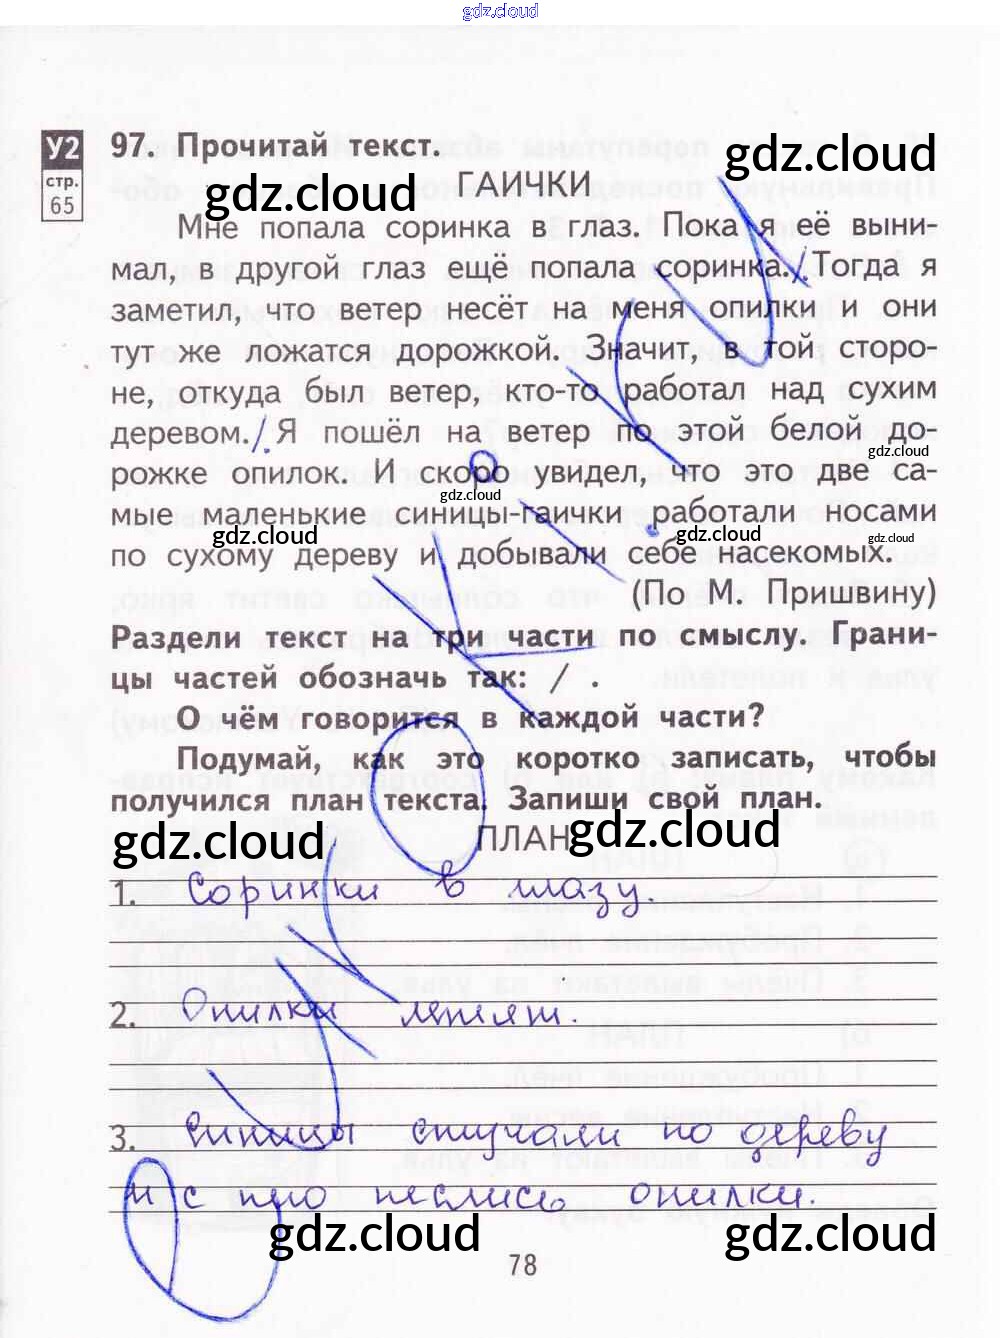 gdz.cloud
У2
стр.
65
97. Прочитай текст.
gdz.cloud
gdz.cloud
ГАИЧКИ
Мне попала соринка в глаз. Пока я её выни-
мал, в другой глаз ещё попала соринка./ Тогда я
заметил, что ветер несёт на меня опилки и они
тут же ложатся дорожкой. Значит, в той сторо-
не, откуда был ветер, кто-то работал над сухим
деревом./ Я пошёл на ветер по этой белой до-
gdz.cloud
рожке опилок. И скоро увидел, что это две са-
gdz.cloud
мые маленькие синицы-гаички работали носами
gdz.cloud
gdz.cloud
gdz.cloud
по сухому дереву и добывали себе насекомых.
(По М. Пришвину)
Раздели текст на три части по смыслу. Грани-
цы частей обозначь так: / .
О чём говорится в каждой части?
Подумай, как это коротко записать, чтобы
получился план текста. Запиши свой план.
gdz.cloud
gdz.cloud
ПЛАН
1. Соринки в глазу.
2. Опилки летят.
3. Синицы стучали по дереву
и с него неслись опилки.
gdz.cloud
gdz.cloud
78